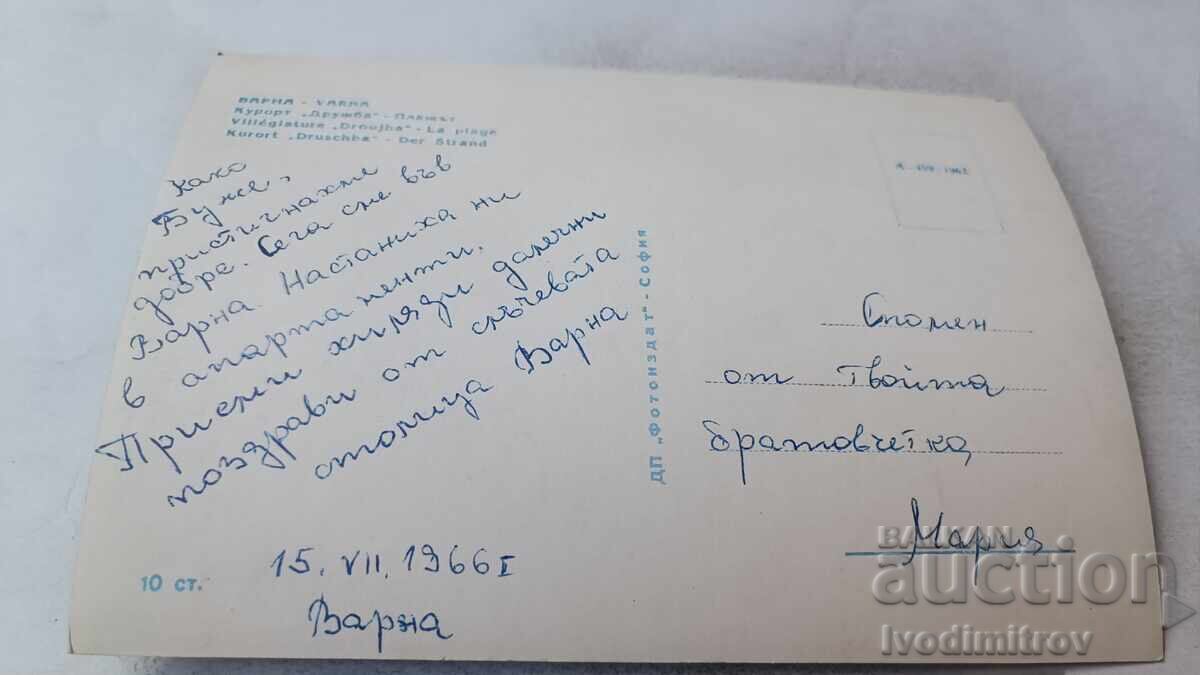 ВАРНА - VARNA
Курорт „Дружба" - Плажът
Villégiature „Droujba" - La plage
Kurort „Druschba" - Der Strand
Како
Буже,
пристигнахме
добре. Сега сме във
Варна. Настаниха ни
в апартаменти.
Приеми хиляди далечни
поздрави от
столица Варна
15. VII. 1966
Варна
10 ст.
ДП „Фотоиздат" - София
1962
Спомен
от Твойта
братовчетка
Мария
BALKAN
auction
Ivodimitrov